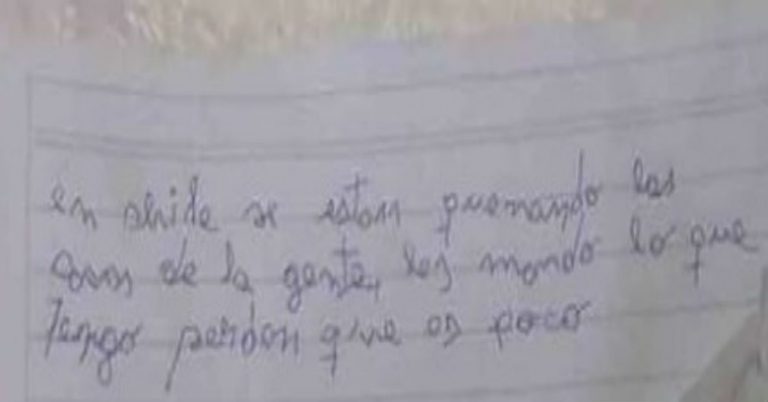 en chile se estan quemando las
casas de la gente, les mando lo que
tengo perdon que es poco